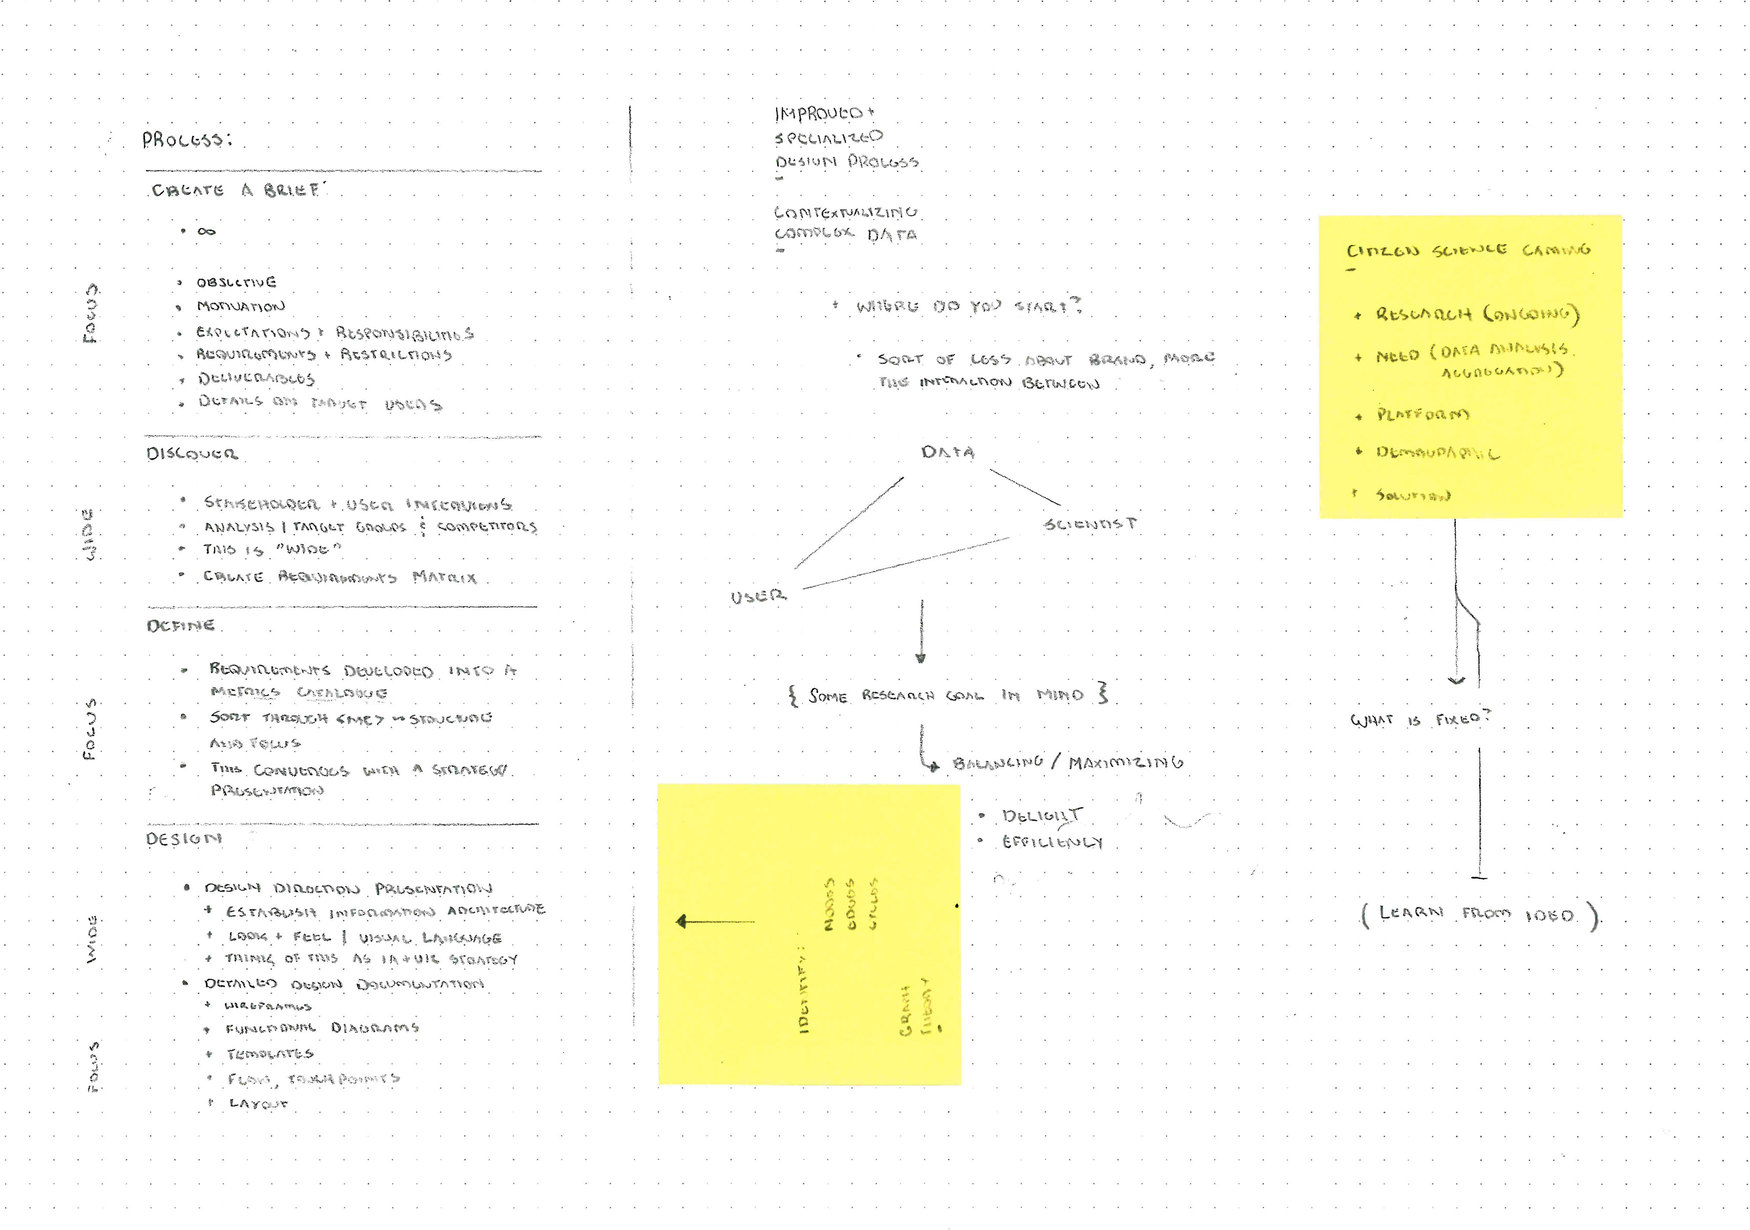 PROCESS:
CREATE A BRIEF
• ∞
• OBJECTIVE
• MOTIVATION
• EXPECTATIONS + RESPONSIBILITIES
• REQUIREMENTS + RESTRICTIONS
• DELIVERABLES
• DETAILS ON TARGET USERS
FOCUS
DISCOVER
• STAKEHOLDER + USER INTERVIEWS
• ANALYSIS | TARGET GROUPS & COMPETITORS
• THIS IS "WIDE"
• CREATE REQUIREMENTS MATRIX
WIDE
DEFINE
• REQUIREMENTS DEVELOPED INTO A
METRICS CATALOGUE
• SORT THROUGH STRUCTURE
AND FOCUS
• THIS CONVERGES WITH A STRATEGY
PRESENTATION
FOCUS
DESIGN
• DESIGN DIRECTION PRESENTATION
+ ESTABLISH INFORMATION ARCHITECTURE
+ LOOK + FEEL | VISUAL LANGUAGE
+ THINK OF THIS AS IA + UX STRATEGY
WIDE
• DETAILED DESIGN DOCUMENTATION
+ WIREFRAMES
+ FUNCTIONAL DIAGRAMS
+ TEMPLATES
+ FLOW, TOUCHPOINTS
+ LAYOUT
FOCUS
IMPROVED +
SPECIALIZED
DESIGN PROCESS
–
CONTEXTUALIZING
COMPLEX DATA
–
+ WHERE DO YOU START?
• SORT OF LESS ABOUT BRAND, MORE
THE INTERACTION BETWEEN
DATA
SCIENTIST
USER
{ SOME RESEARCH GOAL IN MIND }
BALANCING / MAXIMIZING
• DELIGHT
• EFFICIENCY
IDENTIFY:
NODES
EDGES
CYCLES
GRAPH
THEORY
CITIZEN SCIENCE GAMING
–
+ RESEARCH (ONGOING)
+ NEED (DATA ANALYSIS,
AGGREGATION)
+ PLATFORM
+ DEMOGRAPHIC
+ SOLUTION
WHAT IS FIXED?
( LEARN FROM IDEO )